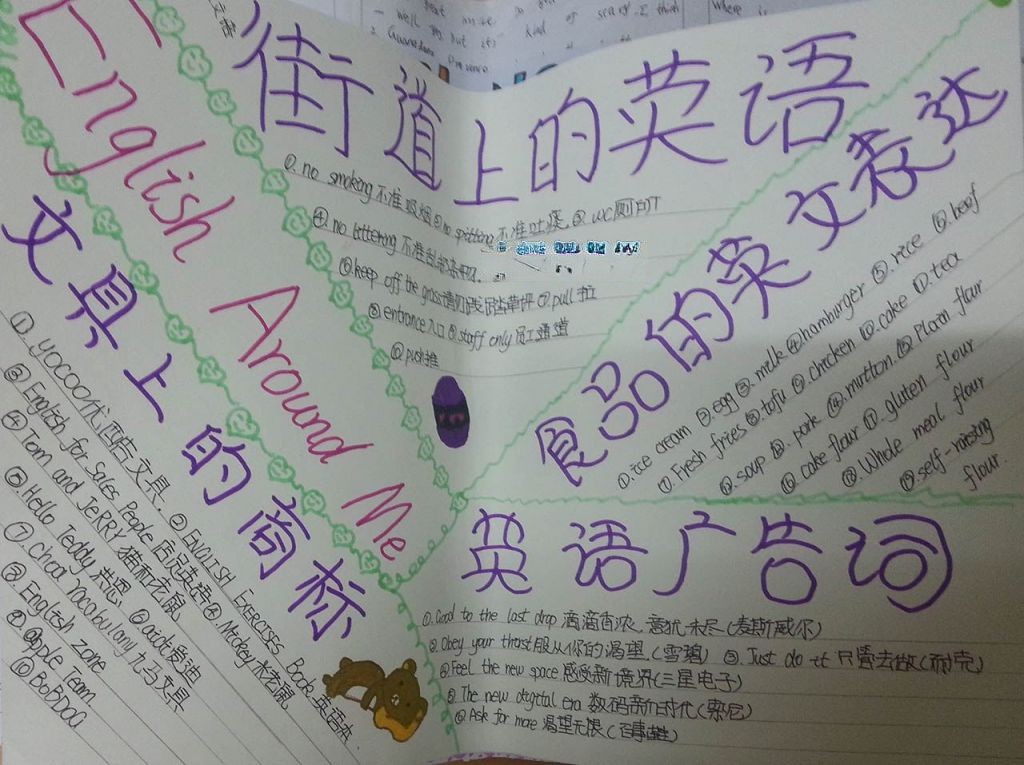 English
Around
Me
街道上的英语
①. no smoking 不准吸烟 ② no spitting 不准吐痰. ③ WC 厕所
④. no littering 不准乱扔杂物.
⑤ keep off the grass 请勿践踏草坪 ⑦ pull 拉
⑧ entrance 入口 ⑨ staff only 员工通道
⑩ push 推
食品的英文表达
①. ice cream ② egg ③. milk ④ hamburger ⑤. rice ⑥. beef
⑦. Fresh fries ⑧. tofu ⑨. chicken ⑩. cake ⑪. tea
⑫. soup ⑬. pork ⑭. mutton. ⑮ Plain flour
⑯ cake flour ⑰ gluten flour
⑱. Whole meal flour
⑲. self-raising
flour.
文具上的商标
①. yocoo 优
文具. ② ENGLISH EXERCISES Book 英语本
③ English for Sales People 店员英语 ④. Mickey 米老鼠
④ Tom and JeRRY 猫和老鼠
⑤. Hello Teddy 泰迪 ⑥ aodi 爱迪
⑦. Chica Vocabulary 九马文具
⑧. English zone
⑨. apple Team
⑩ BoBDOG
英语广告词
①. Good to the last drop 滴滴香浓, 意犹未尽 (麦斯威尔)
②. Obey your thirst 服从你的渴望 (雪碧) ③. Just do it 只管去做 (耐克)
④ Feel the new space 感受新境界 (三星电子)
⑤. The new digital era 数码新时代 (索尼)
⑥ Ask for more 渴望无限 (百事